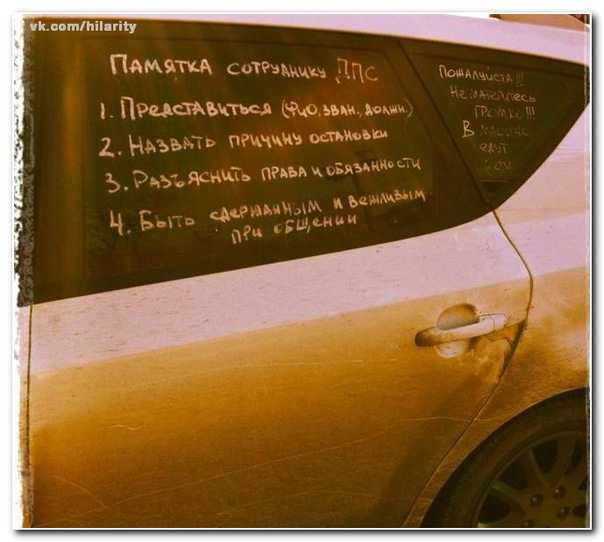 vk.com/hilarity
Памятка сотруднику ДПС
1. Представиться (ФИО, зван., должн.)
2. Назвать причину остановки
3. Разъяснить права и обязанности
4. Быть сдержанным и вежливым
при общении
Пожалуйста!!!
Не матейтесь
громко!!!
В машине
едут
дети